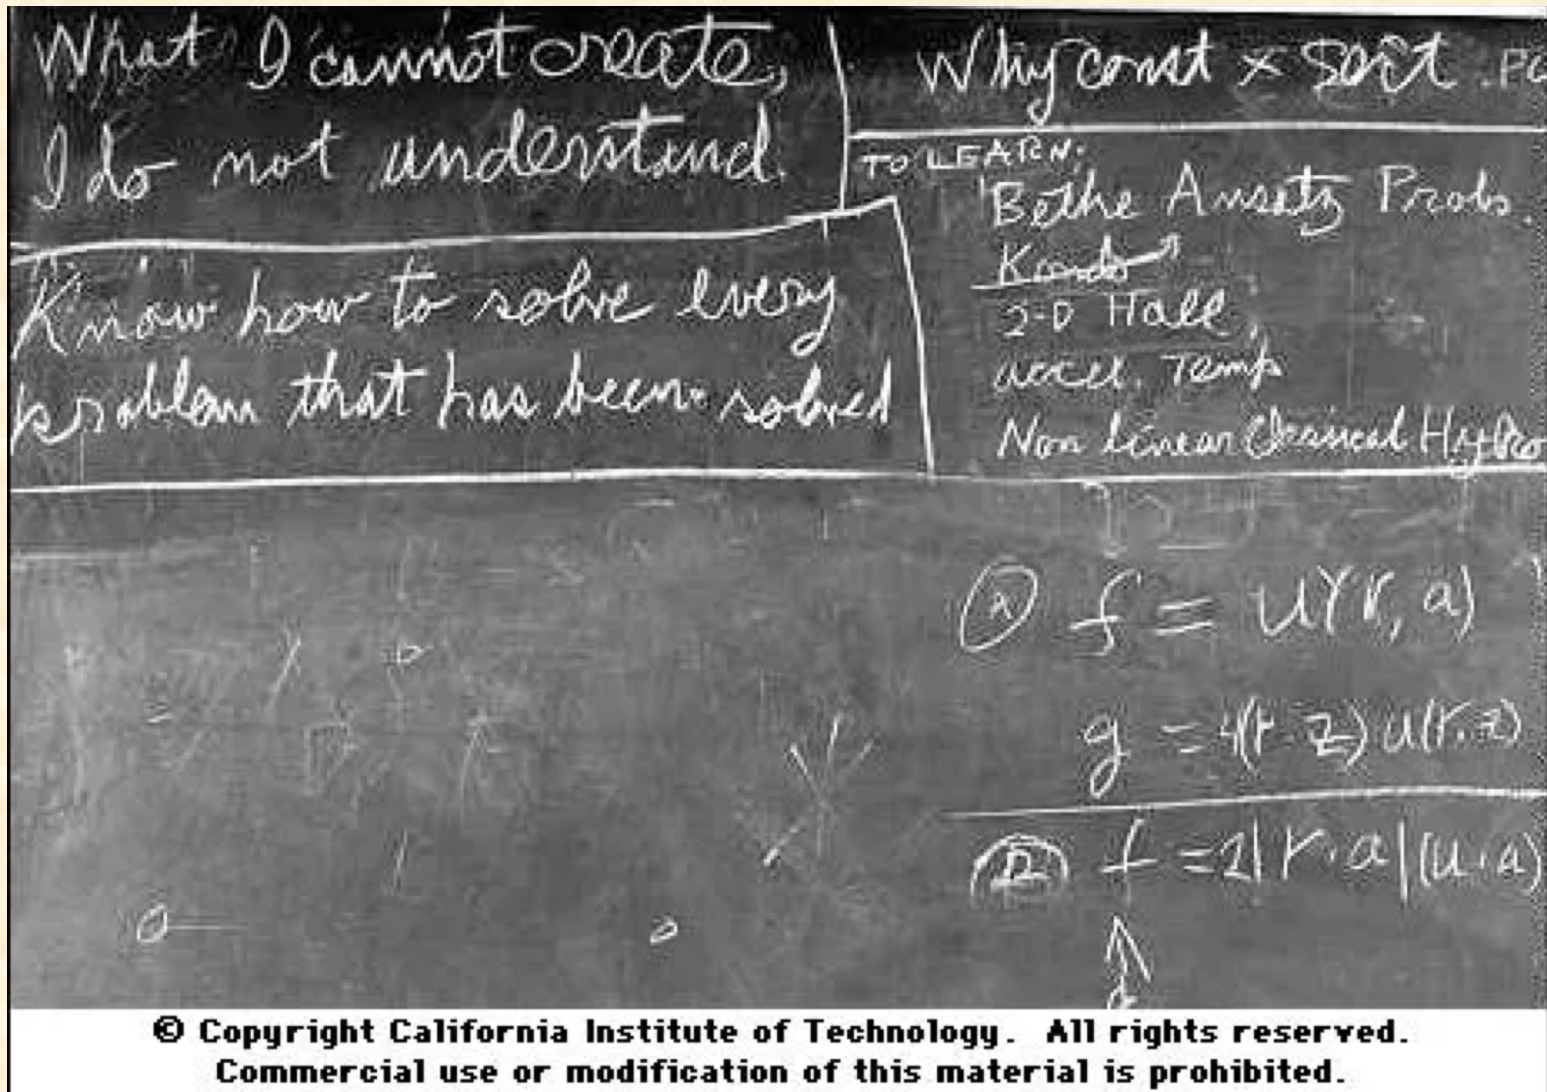 What I cannot create,
I do not understand.
Know how to solve every
problem that has been solved
Why const × sort . PO
TO LEARN:
Bethe Ansatz Probs.
Kondo
2-D Hall
accel. Temp
Non linear Classical Hydro
f = U(r, a)
g = 4(r z) u(r, z)
f = 2|r·a|(u·a)
© Copyright California Institute of Technology. All rights reserved.
Commercial use or modification of this material is prohibited.